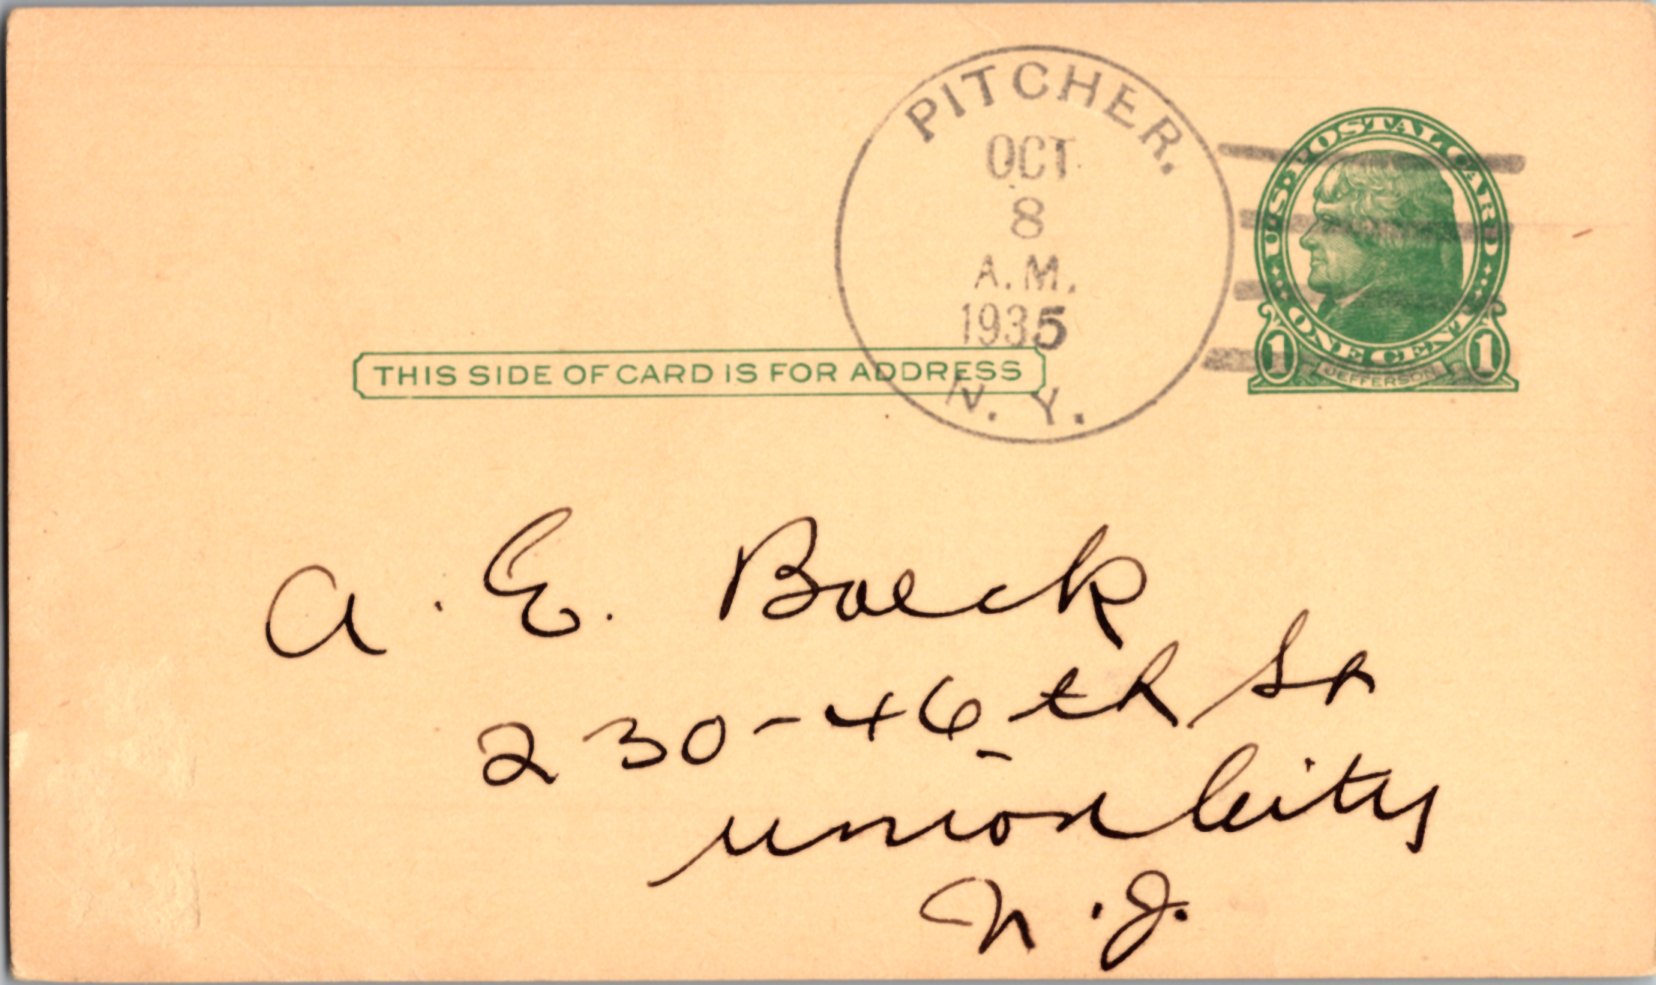 PITCHER.
OCT
8
A.M.
1935
N. Y.
U.S. POSTAL CARD
ONE CENT
1 JEFFERSON 1
THIS SIDE OF CARD IS FOR ADDRESS
A. E. Boeck
230-46th St
Union City
N.J.